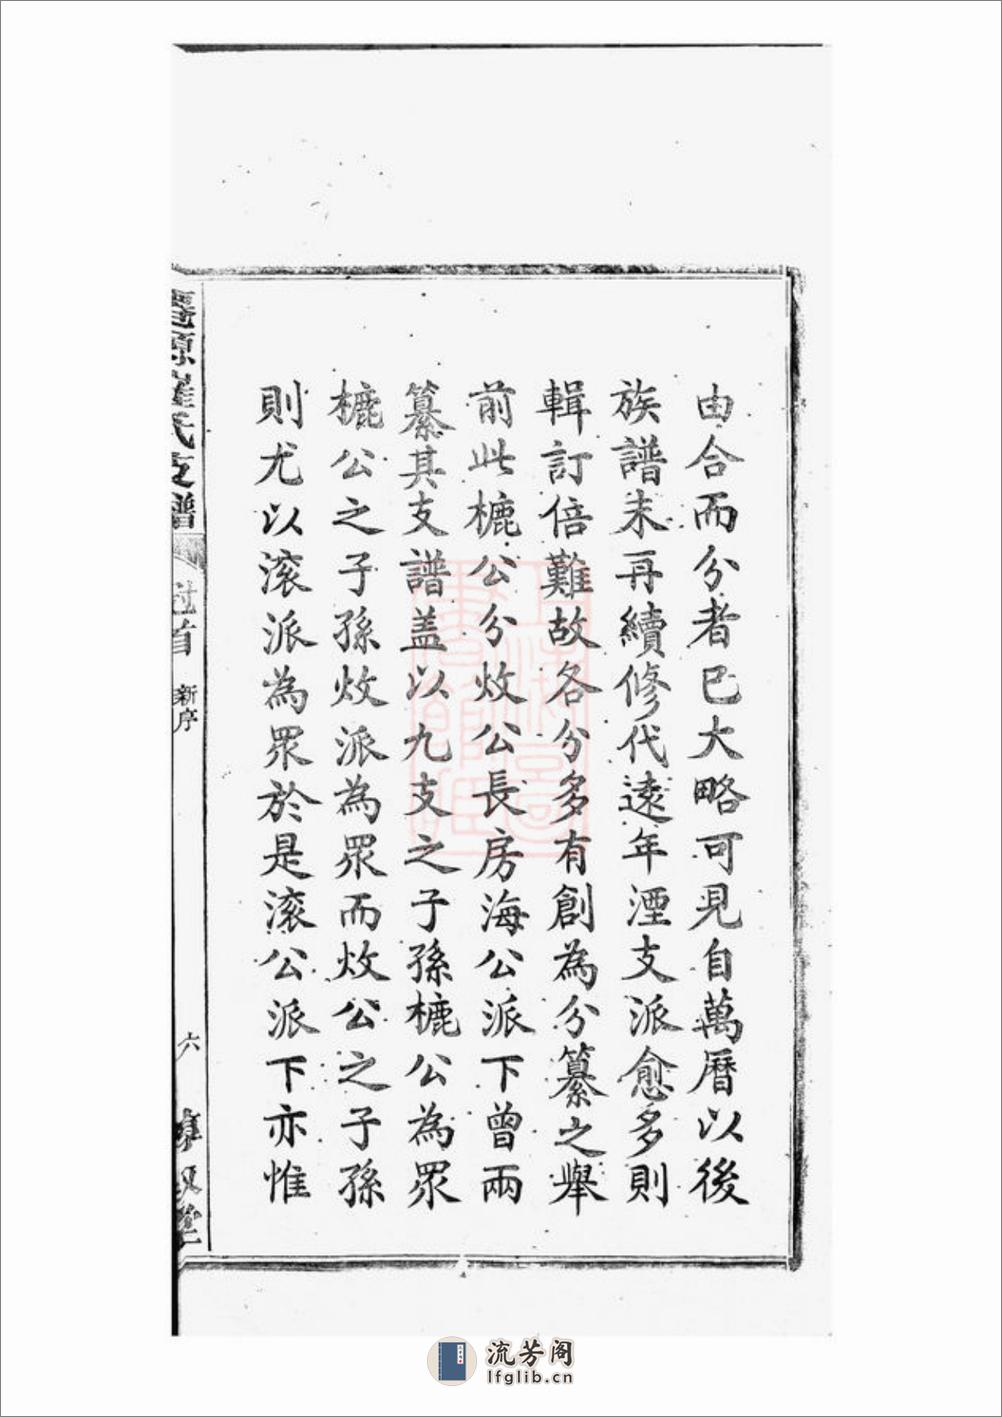 由合而分者已大略可見自萬曆以後
族譜未再續修代遠年湮支派愈多則
輯訂倍難故各分多有創為分纂之舉
前此樚公分炇公長房海公派下曾兩
纂其支譜盖以九支之子孫樚公為眾
樚公之子孫炇派為眾而炇公之子孫
則尤以滚派為眾於是滚公派下亦惟
源羅氏支譜
首
新序
六
流芳阁
lfglib.cn